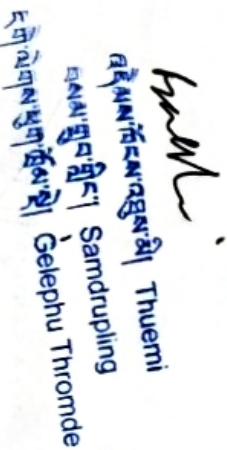 འདེམས་ཁོངས་འཐུས་མི། Thuemi
བསམ་གྲུབ་གླིང་། Samdrupling
དགེ་ལེགས་ཕུག་ཁྲོམ་སྡེ། Gelephu Thromde